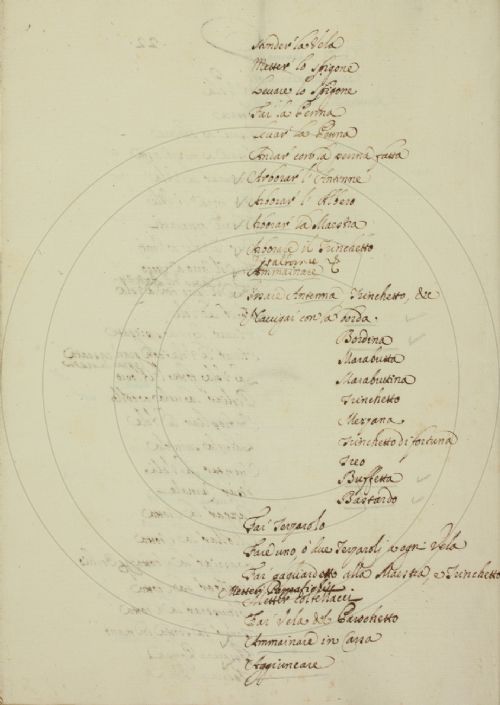 Tender la Vela
Metter lo spigone
Levare lo spigone
Far la Penna
Levar la Penna
Andar con la penna fatta
Arborar l'Antenne
Arborar l'Albero
Arborar la Maestra
Arborare il Trinchetto
Ammainare
Issare Antenna Trinchetto, &c
Navigar con la borda.
Bordina
Marabutta
Marabuttina
Trinchetto
Mezzana
Trinchetto di fortuna
Treo
Buffetta
Bastardo
Far Terzarolo
Fare uno, ò due Terzaroli a ogni Vela
Far gagliardetto alla Maestra, e Trinchetto
Metter
Metter coltellacci
Far Vela del Parochetto
Ammainare in
Aggiuncare